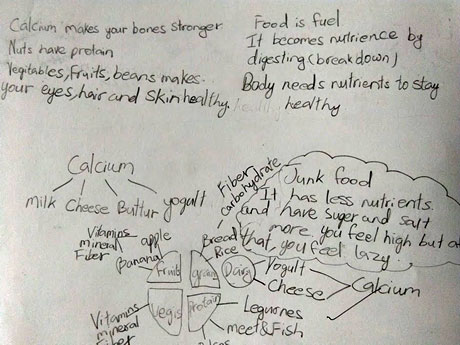 Calcium makes your bones stronger
Nuts have protein
Vegitables, Fruits, beans makes
your eyes, hair and skin healthy.
Food is fuel
It becomes nutrience by
digesting (break down)
Body needs nutrients to stay
healthy
Calcium
milk Cheese Buttur yogult
Junk food
It has less nutrients
and have suger and salt
more you feel high but a
that you feel lazy.
Fiber
carbohydrate
Vitamins
mineral
Fiber
apple
Banana
Fruits
Bread
Rice
grain
Dairy
Yogult
Cheese
Calcium
Vitamins
mineral
Fiber
Vegis
Protein
Legumes
meet & Fish